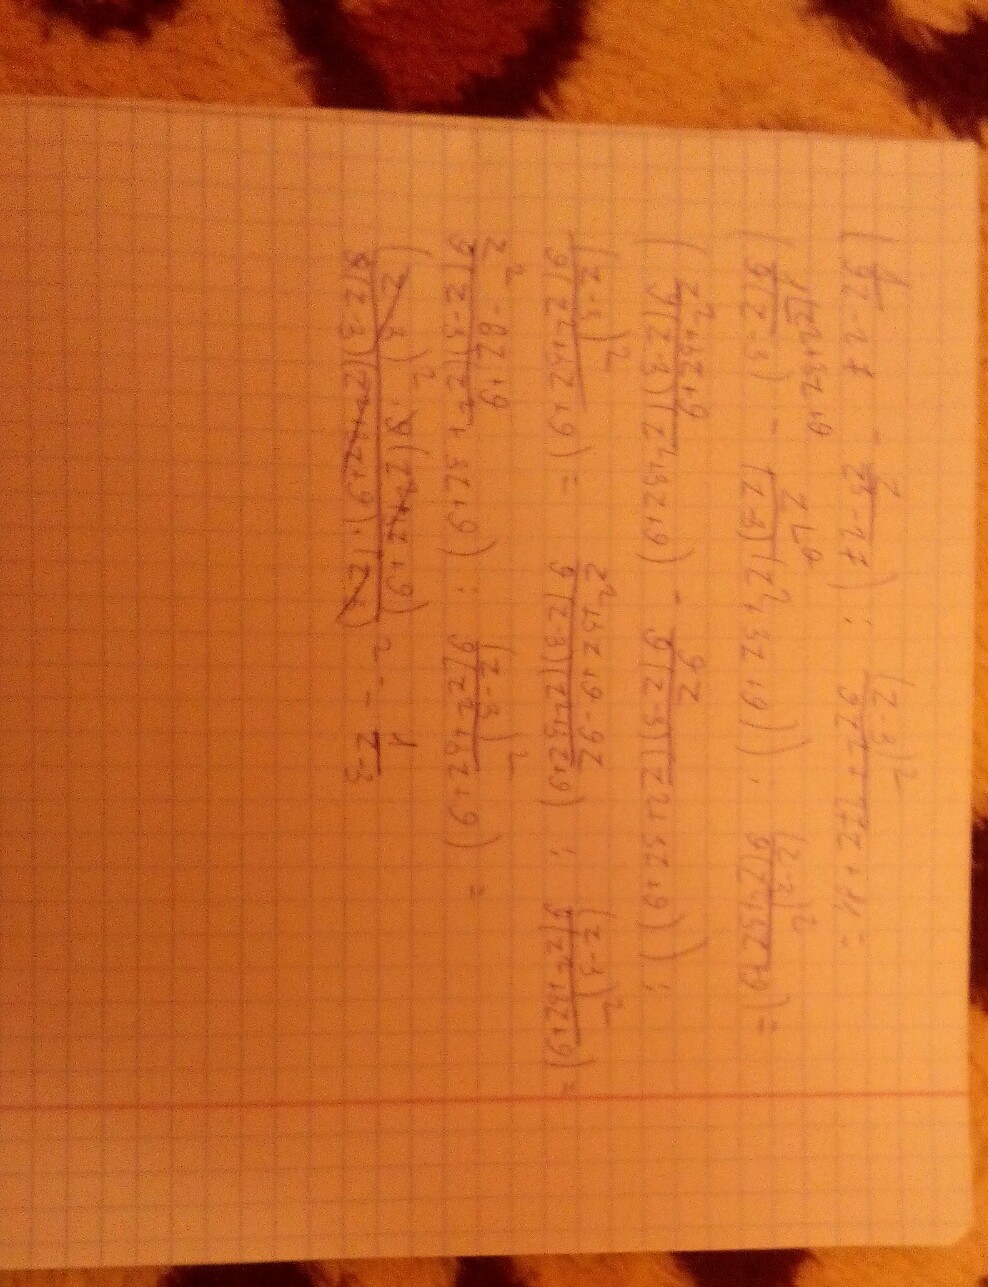 (1/(9z-27) - z/(z³-27)) : (z-3)²/(9z²+
(1(z²+3z+9/(9(z-3) - z·9/((z-3)(z²+3z+9))) : (z-3)²/(9(z²+3z+9) =
(z²+3z+9/(9(z-3)(z²+3z+9) - 9z/(9(z-3)(z²+3z+9)) :
(z-3)²/(9(z²+3z+9) = z²+3z+9-9z/(9(z-3)(z²+3z+9) : (z-3)²/(9(z²+3z+9) =
z²-6z+9/(9(z-3)(z²+3z+9) : (z-3)²/(9(z²+3z+9) =
(z-3)²·9(z²+3z+9)/(9(z-3)(z²+3z+9)·(z-3)² = 1/(z-3)